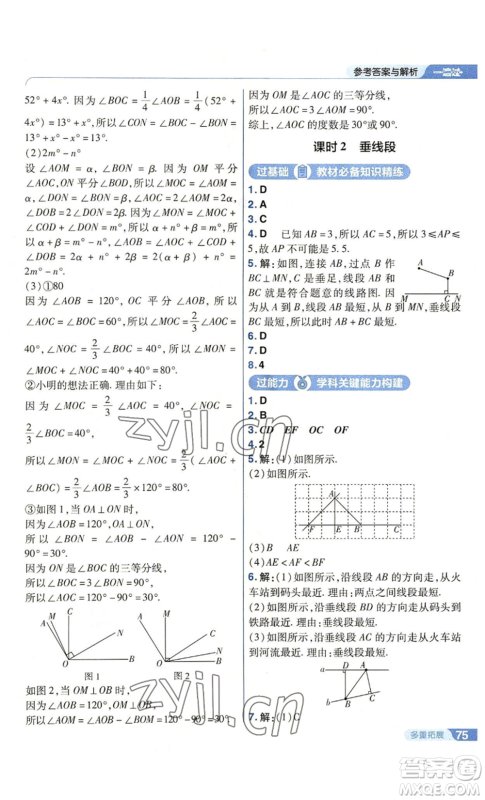 参考答案与解析 一遍过
52°+4x°. 因为∠BOC=1/4∠AOB=1/4(52°+
4x°)=13°+x°, 所以∠CON=∠BOC-∠BON=
13°+x°-x°=13°.
(2)2m°-n°
设∠AOM=α,∠BON=β. 因为 OM 平分
∠AOC,ON 平分∠BOD, 所以∠MOC=∠AOM=α,
∠DOB=2∠DON=2∠BON=2β. 所以∠MON=
∠COD+∠MOC+∠DON=m°, 所以α+n°+β=m°,
所以α+β=m°-n°. 所以∠AOB=∠AOM+∠MOC+
∠COD+∠DON+∠NOB=2α+n°+2β=
2m°-n°.
(3)①80
因为∠AOB=120°, OC 平分∠AOB, 所以
∠AOC=∠BOC=60°, 所以∠MOC=2/3∠AOC=
40°, ∠NOC=2/3∠BOC=40°, 所以∠MON=
∠MOC+∠NOC=40°+40°=80°.
②小明的想法正确. 理由如下:
因为∠MOC=2/3∠AOC, ∠NOC=2/3∠BOC,
所以∠MON=∠MOC+∠NOC=2/3∠AOC+
2/3∠BOC=2/3(∠AOC+∠BOC)=2/3∠AOB=80°.
③如图 1,因为∠AOB=120°,OA⊥ON,
所以∠BON=∠AOB-∠AON=120°-
90°=30°.
因为 ON 是∠BOC 的三等分线,
所以∠BOC=3∠BON=90°,
所以∠AOC=∠AOB-∠BOC=120°-90°=30°.
A C N O B
图 1
M A C N O B
图 2
如图 2,当 OM⊥OB 时,
因为∠AOB=120°,OM⊥OB,
所以∠AOM=∠AOB-∠BOM=120°-90°=30°.
因为 OM 是∠AOC 的三等分线,
所以∠AOC=3∠AOM=90°.
综上,∠AOC 的度数是30°或90°.
课时 2 垂线段
过基础 教材必备知识精练
1. D
2. D
3. A
4. D 已知 AB=3, 所以 AC=5, 所以 3≤AP≤
5, 故 AP 不可能是 5. 5.
5. 解:如图,连接 AB,过点 B 作
BC⊥MN,C 是垂足,线段 AB 和
BC 就是符合题意的线路图. 因
为从 A 到 B,线段 AB 最短,从 B 到 MN,垂线段
BC 最短,所以此时 AB+BC 最短.
A B M C N
6. D
7. D
8. 4
过能力 学科关键能力构建
1. D
2. B
3. CD EF OC OF
4. 2
5. 解:(1)如图所示.
(2)如图所示.
A F E B C
(3)B AE
(4)AE<AF<BF
6. 解:(1)如图所示,沿线段 AB 的方向走,从火
车站到码头最近. 理由:两点之间线段最短.
(2)如图所示,沿垂线段 BD 的方向走从码头到
铁路最近. 理由:垂线段最短.
(3)如图所示,沿垂线段 AC 的方向走从火车站
到河流最近. 理由:垂线段最短.
D A B C
7. 解:(1)C
多重拓展 75
zyjl.cn
zyjl.cn
答案圈
MXQE.COM